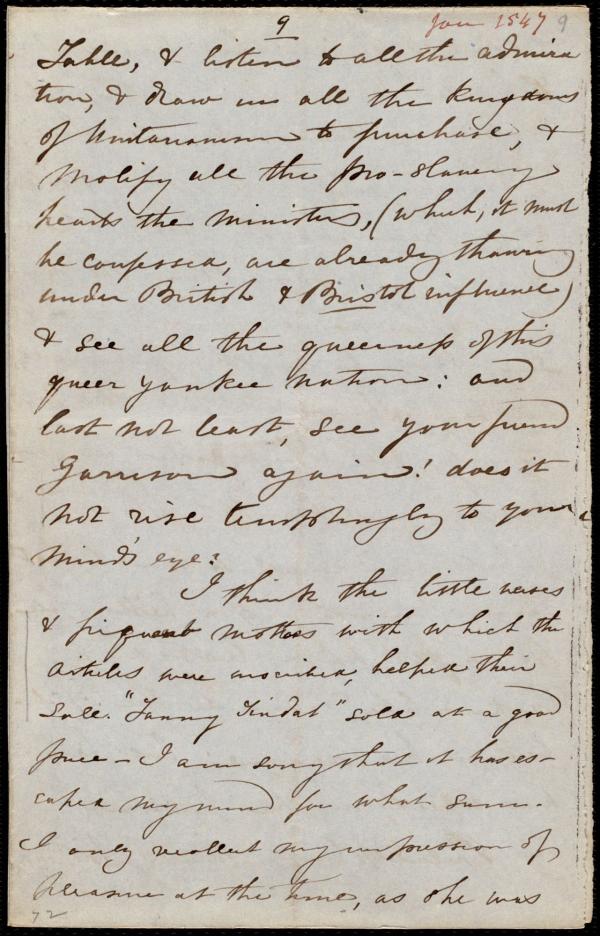 9
Jan 1847 9
Table, & listen to all the admira
tion, & draw in all the Kingdoms
of Unitarianism to purchase, &
molify all the pro-slavery
hearts the ministers, (which, it must
be confessed, are already thawing
under British & Bristol influence)
& see all the queerness of this
queer Yankee nation: and
last not least, see your friend
Garrison again! does it
not rise temptingly to your
mind's eye?
I think the little verses
& piquant mottoes with which the
articles were inscribed, helped their
sale. "Fanny Tindal" sold at a good
price - I am sorry that it has es-
caped my mind for what sum.
I only recollect my impression of
pleasure at the time, as she was
72